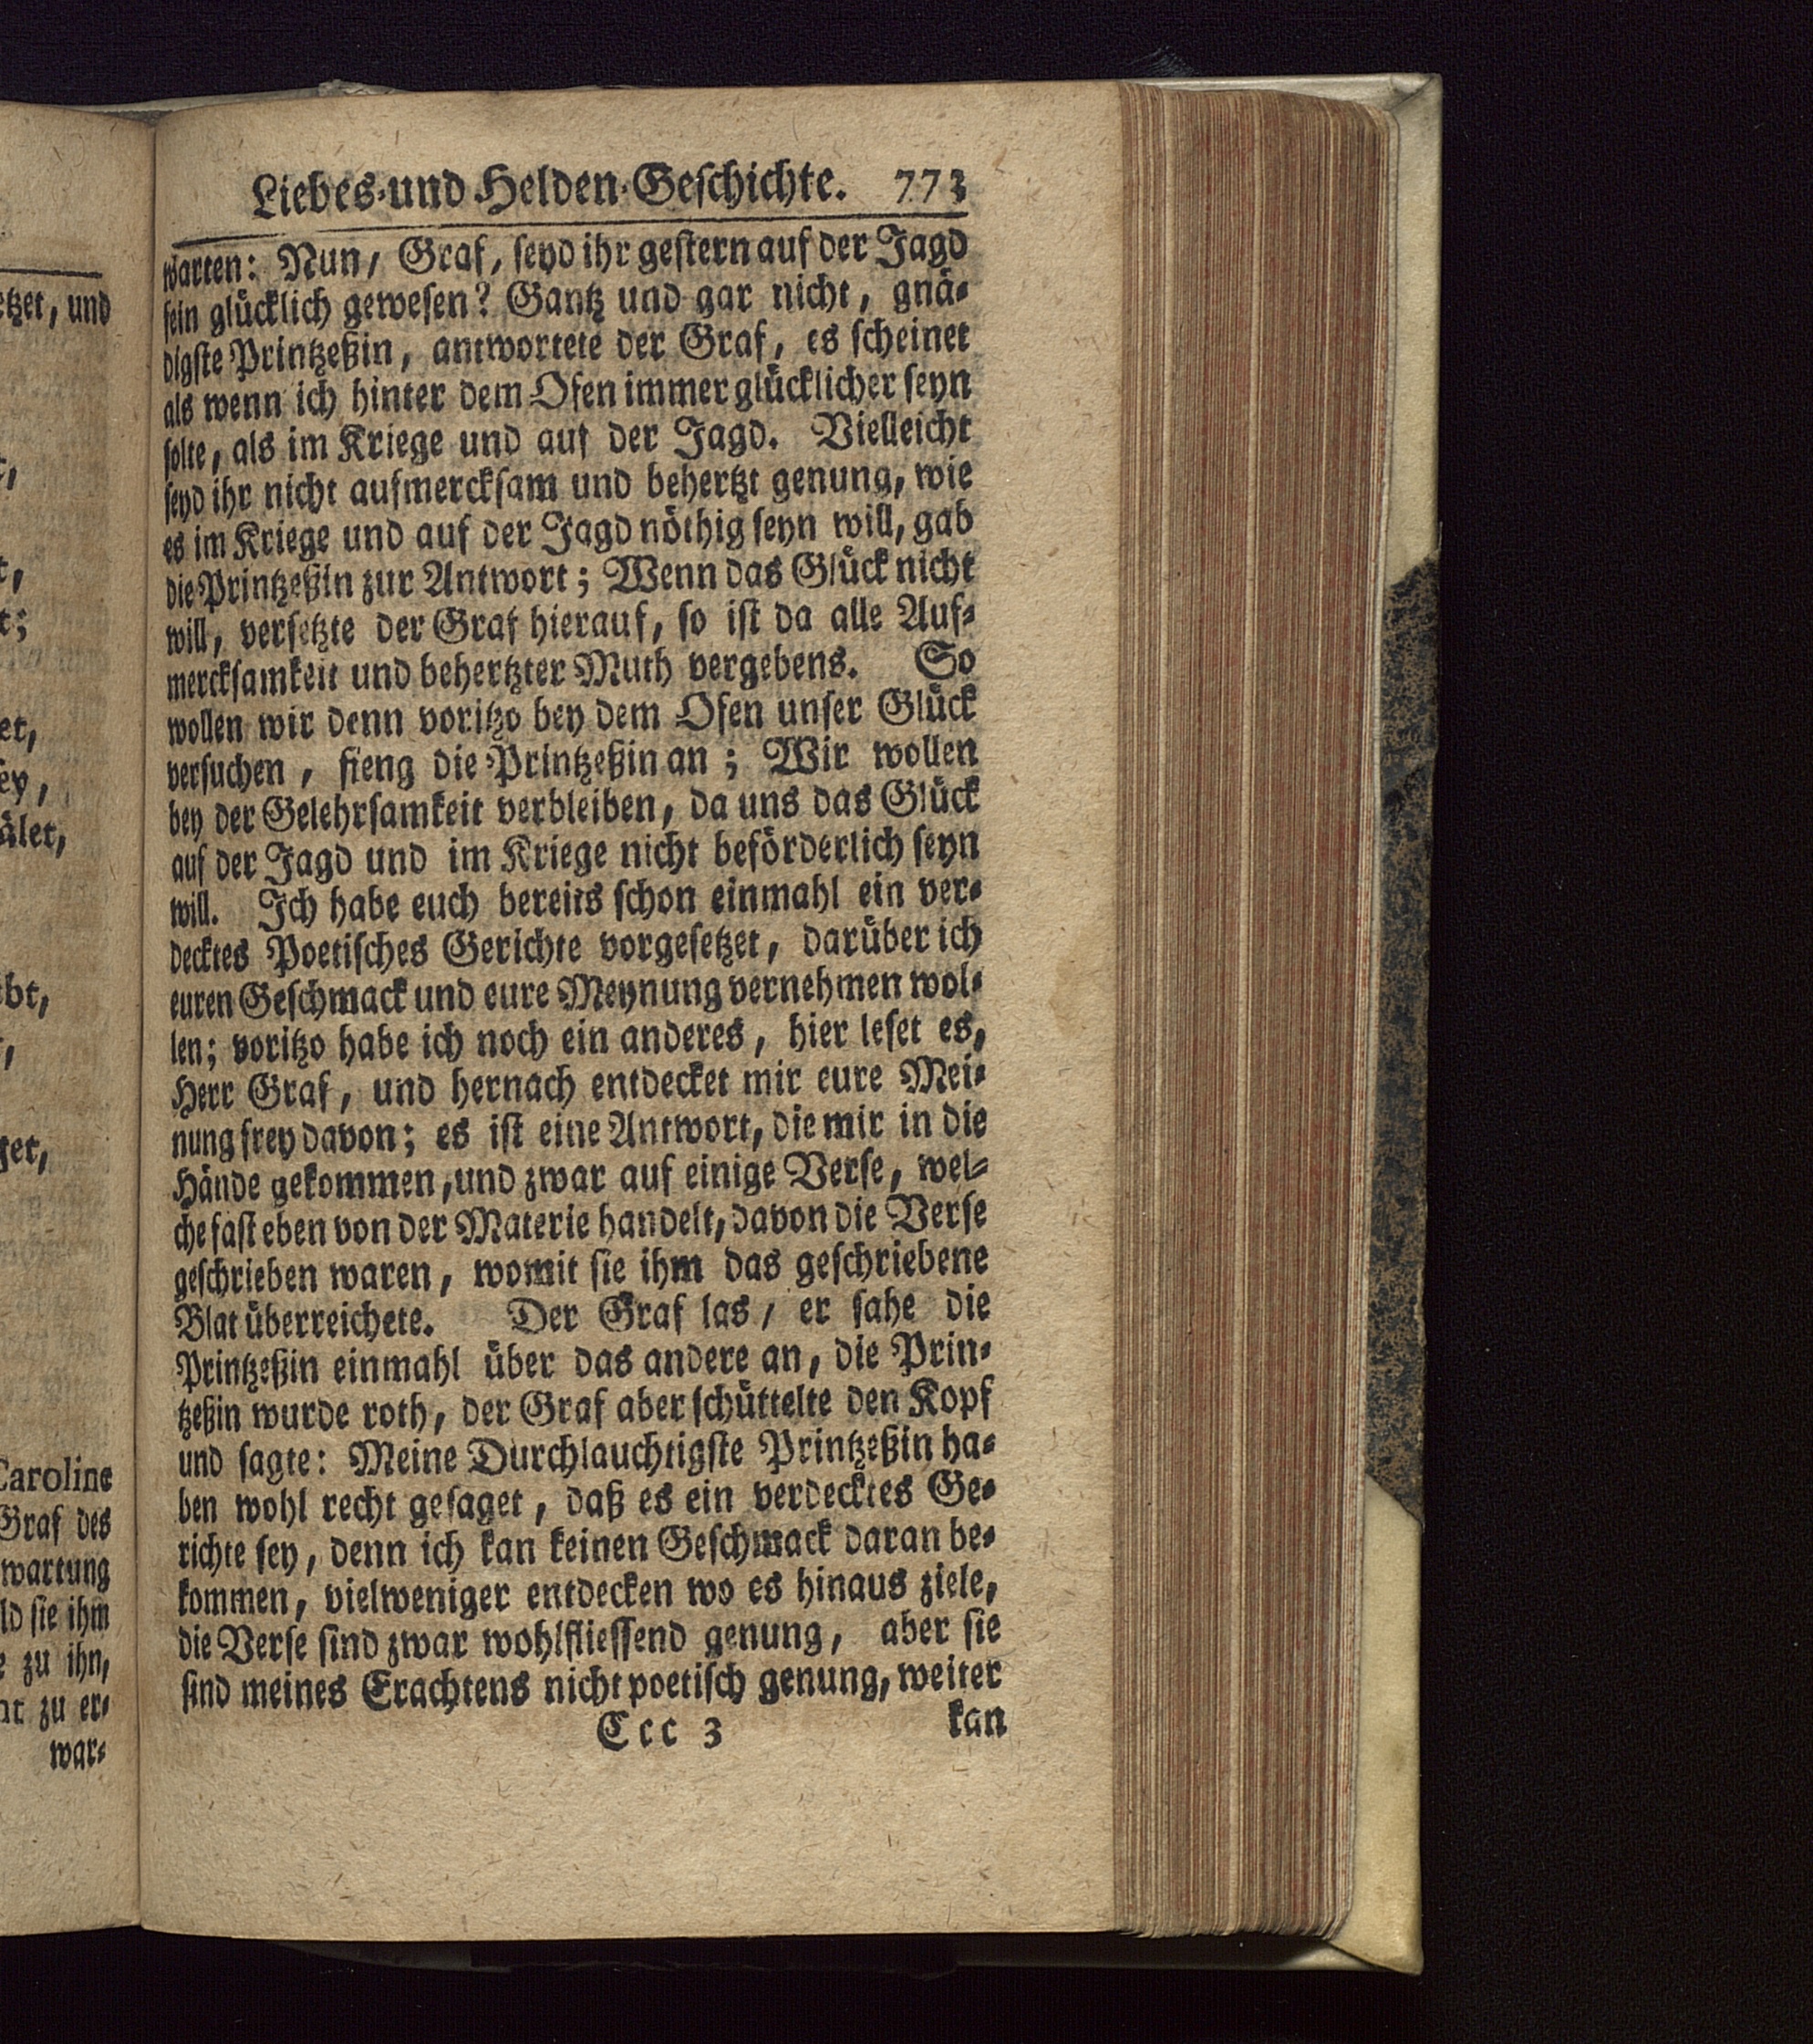 etzet, und
t,
t,
t;
et,
sey,
älet,
bt,
,
get,
Caroline
Graf des
wartung
ld sie ihm
e zu ihn,
zu er-
war-
Liebes-und Helden-Geschichte. 773
warten: Nun/ Graf, seyd ihr gestern auf der Jagd
sein glücklich gewesen? Gantz und gar nicht, gnä-
digste Printzeßin, antwortete der Graf, es scheinet
als wenn ich hinter dem Ofen immer glücklicher seyn
solte, als im Kriege und auf der Jagd. Vielleicht
seyd ihr nicht aufmercksam und behertzt genung, wie
es im Kriege und auf der Jagd nöthig seyn will, gab
die Printzeßin zur Antwort; Wenn das Glück nicht
will, versetzte der Graf hierauf, so ist da alle Auf-
mercksamkeit und behertzter Muth vergebens. So
wollen wir denn voritzo bey dem Ofen unser Glück
versuchen, fieng die Printzeßin an; Wir wollen
bey der Gelehrsamkeit verbleiben, da uns das Glück
auf der Jagd und im Kriege nicht beförderlich seyn
will. Ich habe euch bereits schon einmahl ein ver-
decktes Poetisches Gerichte vorgesetzet, darüber ich
euren Geschmack und eure Meynung vernehmen wol-
len; voritzo habe ich noch ein anderes, hier leset es,
Herr Graf, und hernach entdecket mir eure Mei-
nung frey davon; es ist eine Antwort, die mir in die
Hände gekommen, und zwar auf einige Verse, wel-
che fast eben von der Materie handelt, davon die Verse
geschrieben waren, womit sie ihm das geschriebene
Blat überreichete. Der Graf las/ er sahe die
Printzeßin einmahl über das andere an, die Prin-
tzeßin wurde roth, der Graf aber schüttelte den Kopf
und sagte: Meine Durchlauchtigste Printzeßin ha-
ben wohl recht gesaget, daß es ein verdecktes Ge-
richte sey, denn ich kan keinen Geschmack daran be-
kommen, vielweniger entdecken wo es hinaus ziele,
die Verse sind zwar wohlfliessend genung, aber sie
sind meines Erachtens nicht poetisch genung, weiter
Ccc 3 kan